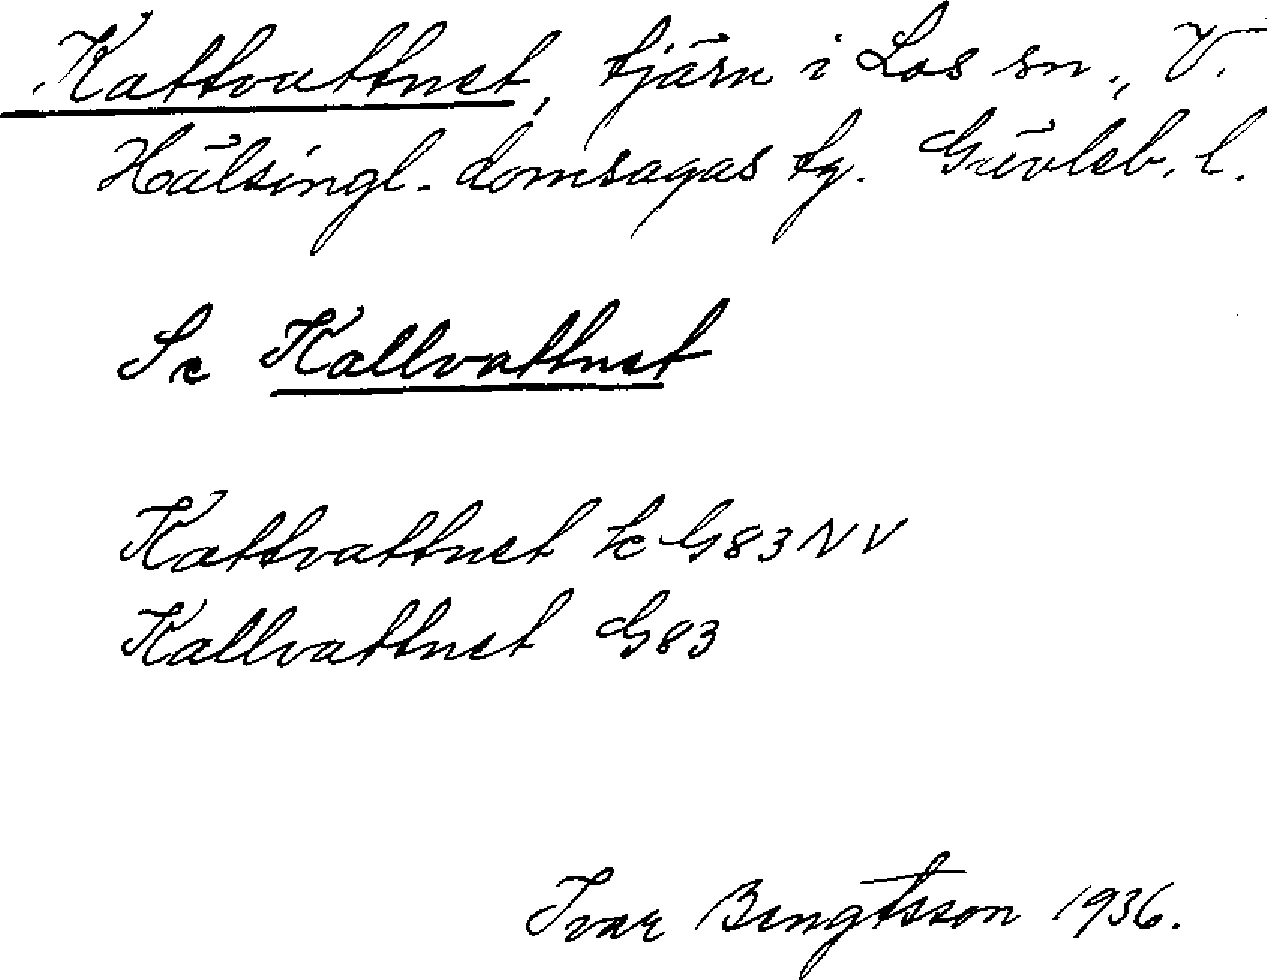 Kattvattnet, tjärn i Los sn., V.
Hälsingl. domsagas tg. Gävleb. l.
Se Kallvattnet
Kattvattnet Ek G83NV
Kallvattnet G83
Ivar Bengtsson 1936.